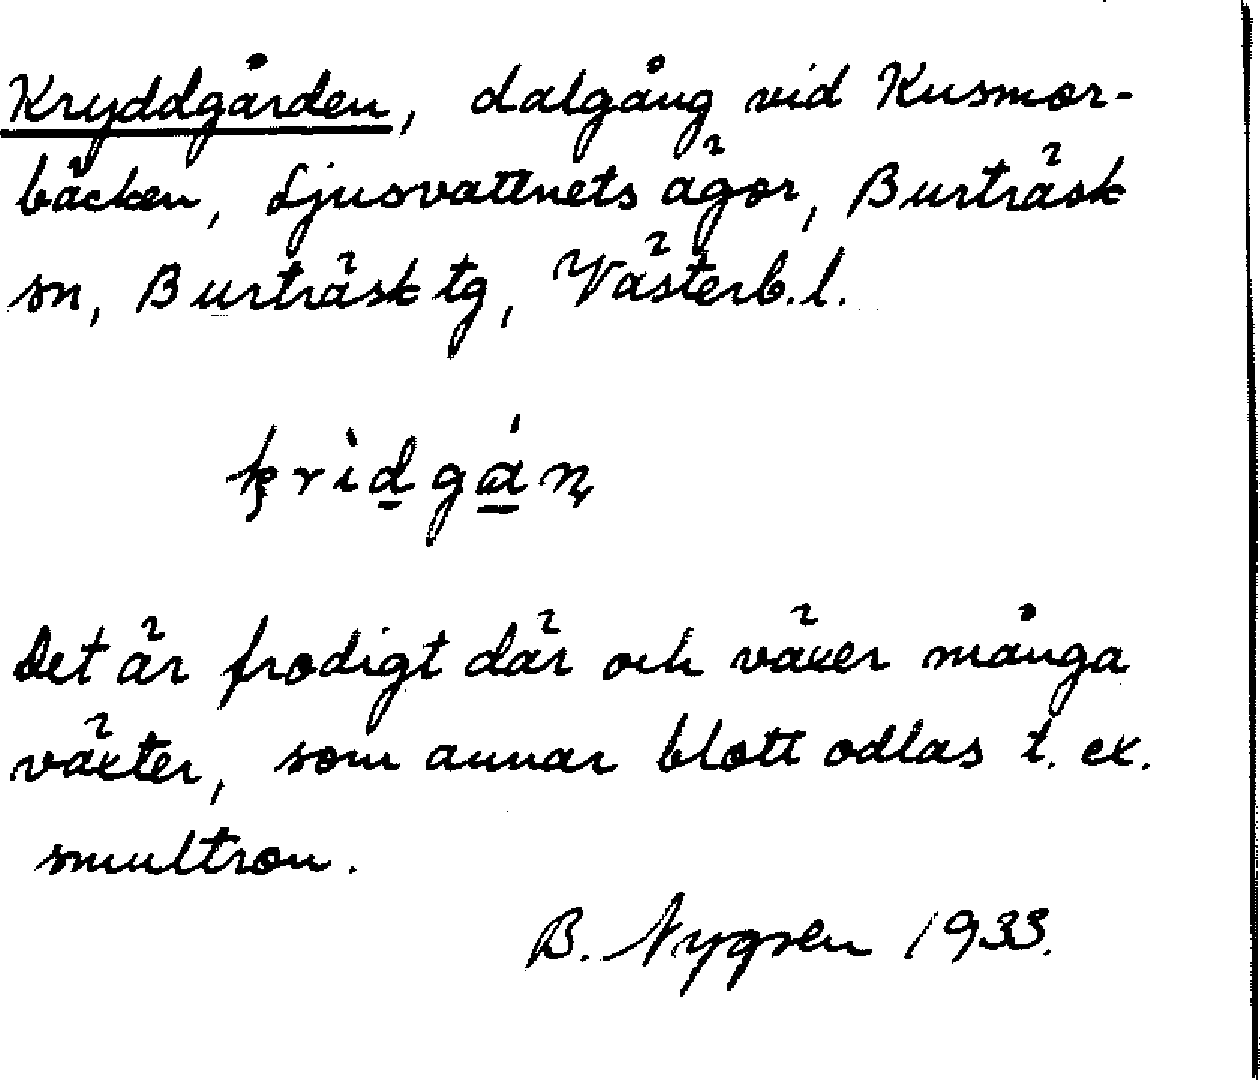 Kryddgården, dalgång vid Kusmor-
bäcken, Ljusvattnets ägor, Burträsk
sn, Burträsk tg, Västerb.l.
krìdgán
Det är frodigt där och växer många
växter, som annar blott odlas t. ex.
smultron.
B. Nygren 1933.